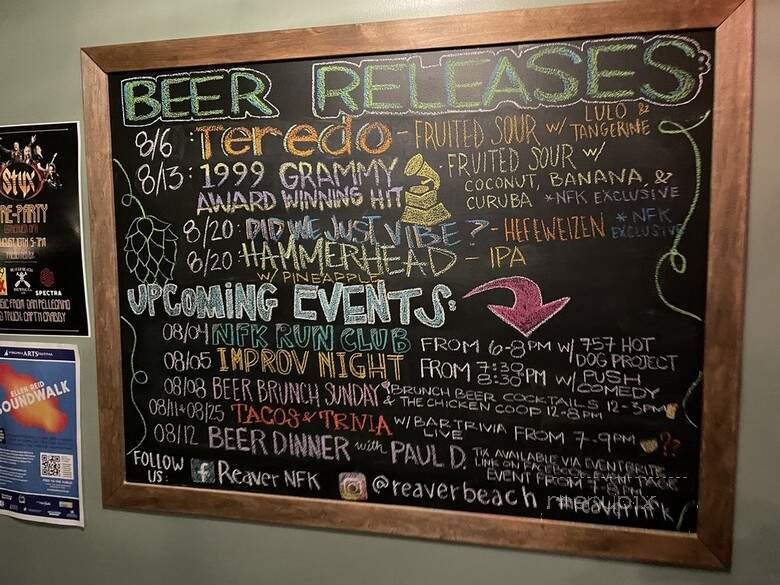 BEER RELEASES
8/6 : Teredo - FRUITED SOUR w/ LULO & TANGERINE
8/13: 1999 GRAMMY AWARD WINNING HIT - FRUITED SOUR w/ COCONUT, BANANA, & CURUBA *NFK EXCLUSIVE
8/20: DID WE JUST VIBE? - HEFEWEIZEN *NFK EXCLUSIVE
8/20: HAMMERHEAD - IPA
W/ PINEAPPLE
UPCOMING EVENTS:
08/04 NFK RUN CLUB FROM 6-8PM w/ 757 HOT DOG PROJECT
08/05 IMPROV NIGHT FROM 7:30 8:30PM w/ PUSH COMEDY
08/08 BEER BRUNCH SUNDAY BRUNCH BEER COCKTAILS 12-3PM
& THE CHICKEN COOP 12-8PM
08/11 & 08/25 TACOS & TRIVIA W/ BAR TRIVIA LIVE FROM 7-9PM ??
08/12 BEER DINNER with PAUL D. TIX AVAILABLE VIA EVENTBRITE
LINK ON FACEBOOK EVENT
EVENT FROM
FOLLOW US: f Reaver NFK @reaverbeach
menupix
STYX
RE-PARTY
SPECTRA
SIC FROM DAN PELLEGRINO
D TRUCK CAPTN CRABBY
VIRGINIA ARTS FESTIVAL
ELLEN REID
OUNDWALK